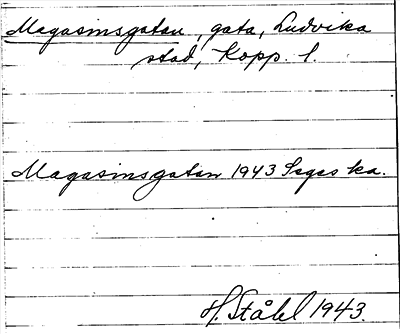 Magasinsgatan, gata, Ludvika
stad, Kopp. l.
Magasinsgatan 1943 Sagas ka.
H. Ståhl 1943.